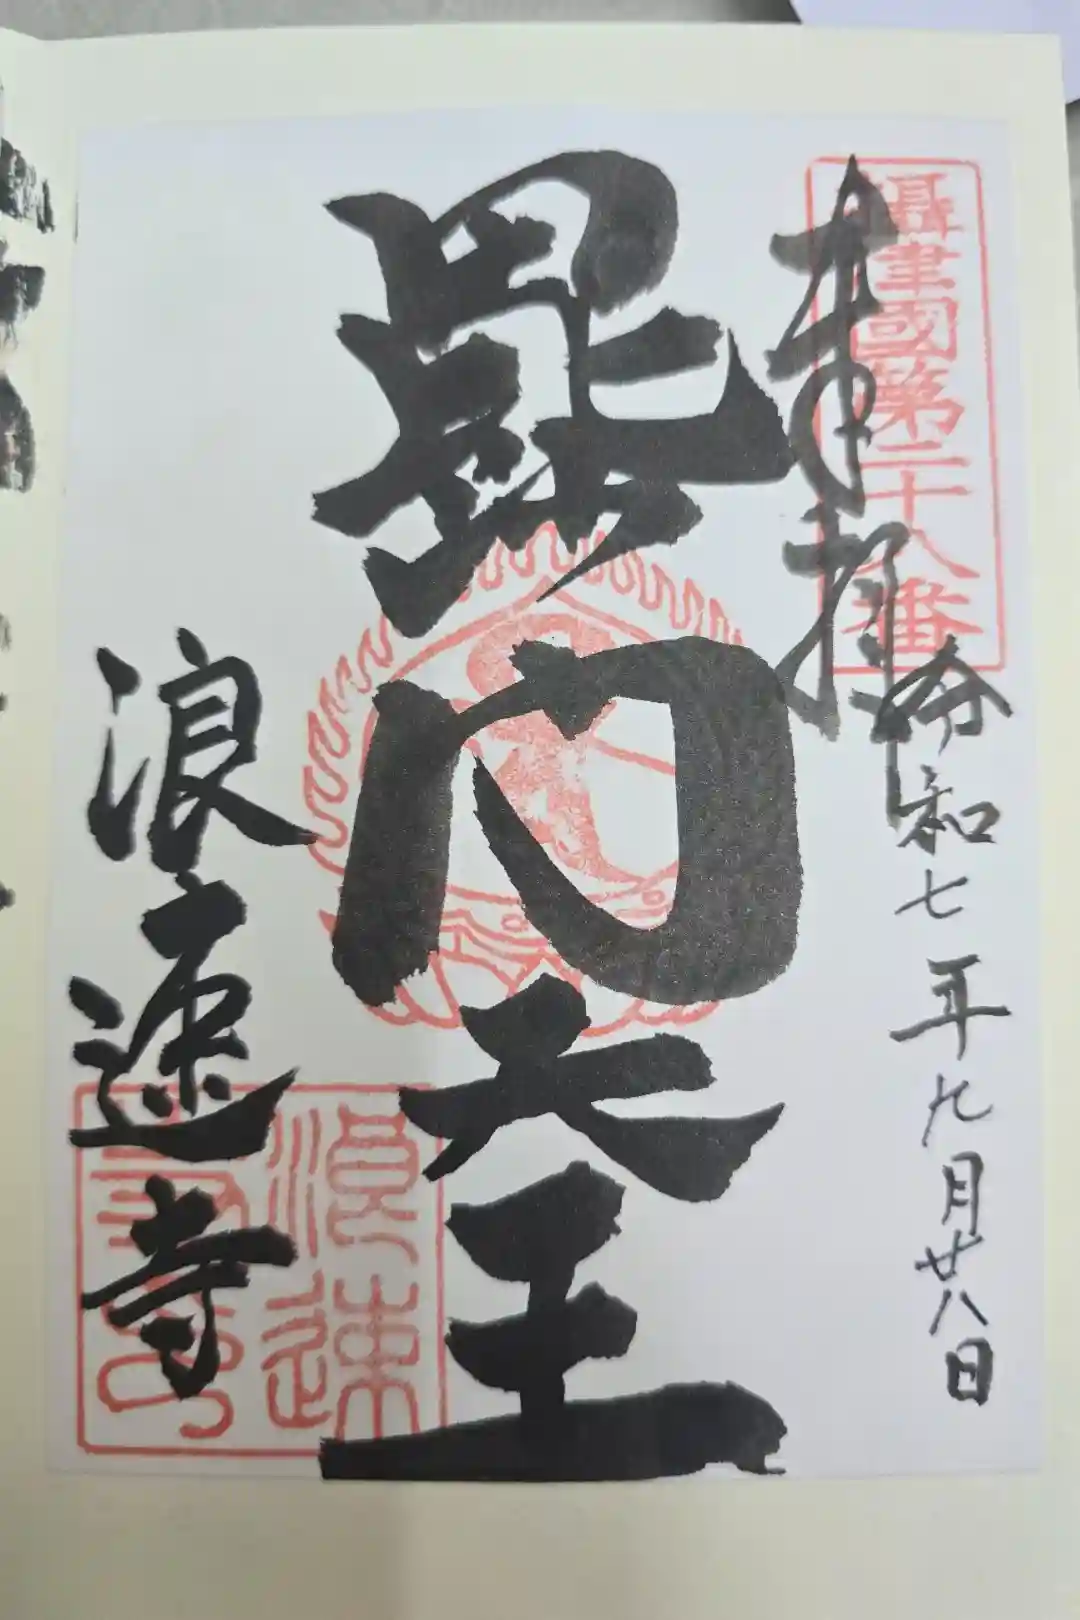 攝津國第二十八番
奉拝
令和七年九月廿八日
毘沙門天王
浪速寺
浪速
寺印